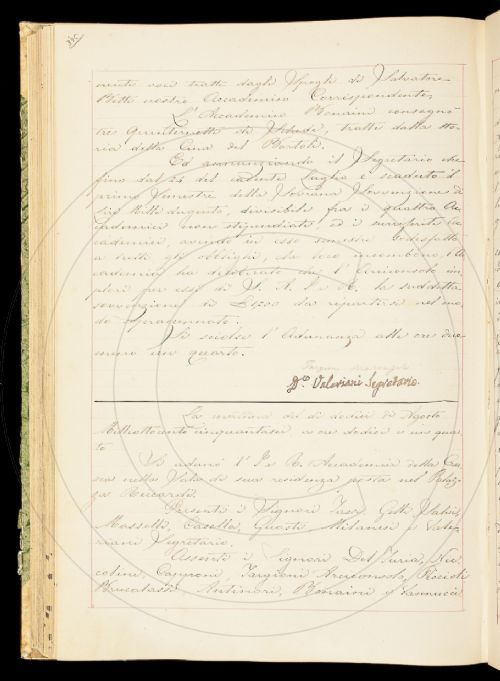 nuente voci tratte dagli Spogli di Salvatore
Betti nostro Accademico Corrispondente,
L'Accademico Bonaini consegnò
tre quinternetti di Schede, tratte dalla Sto-
ria della Cina del Bartoli.
Ed annunciando il Segretario che
fino dal 24 del cadente Luglio è scaduto il
primo Semestre della Sovrana Sovvenzione di
divisibile fra i quattro Ac-
cademici non stipendiati, ed i
cademici, avendo in esso semestre sodisfatto
a tutti gli obblighi, che loro incombono, l'Ac-
cademia ha deliberato che l'Arciconsolo im-
plori per essi da S. A. I. e R. la suddetta
sovvenzione di da ripartirsi nel mo-
do sopraccennato.
Si sciolse l'Adunanza alle ore due
meno un quarto.
D.co Valeriani Segretario.
La mattina del dì dodici di Agosto
Milleottocento cinquantasei a ore dodici e un quar-
to
Si adunò l'I. e R. Accademia della Cru-
sca nella Sala di sua residenza posta nel Palaz-
zo Riccardi.
Presenti i Signori
Masselli, Casella, Guasti Milanesi e Vale-
riani Segretario.
Assenti i Signori Del Furia, Nic-
colini, Capponi, Targioni Arciconsolo,
Brucalassi, Antinori, Bonaini e Vannucci